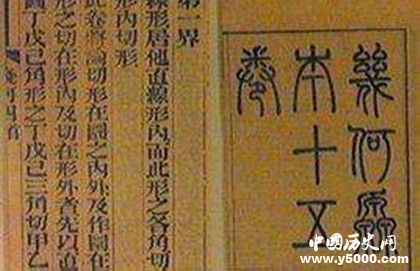 幾何原
本十五
卷
第一界
線形居他直線形內而此形之各角切
形內切形
此卷將論切形在圜之內外及作圜在
形之切在形內及切在形外者先以直
圖丁戊己角形之丁戊己三角切甲乙
中国历史网
www.y5000.com